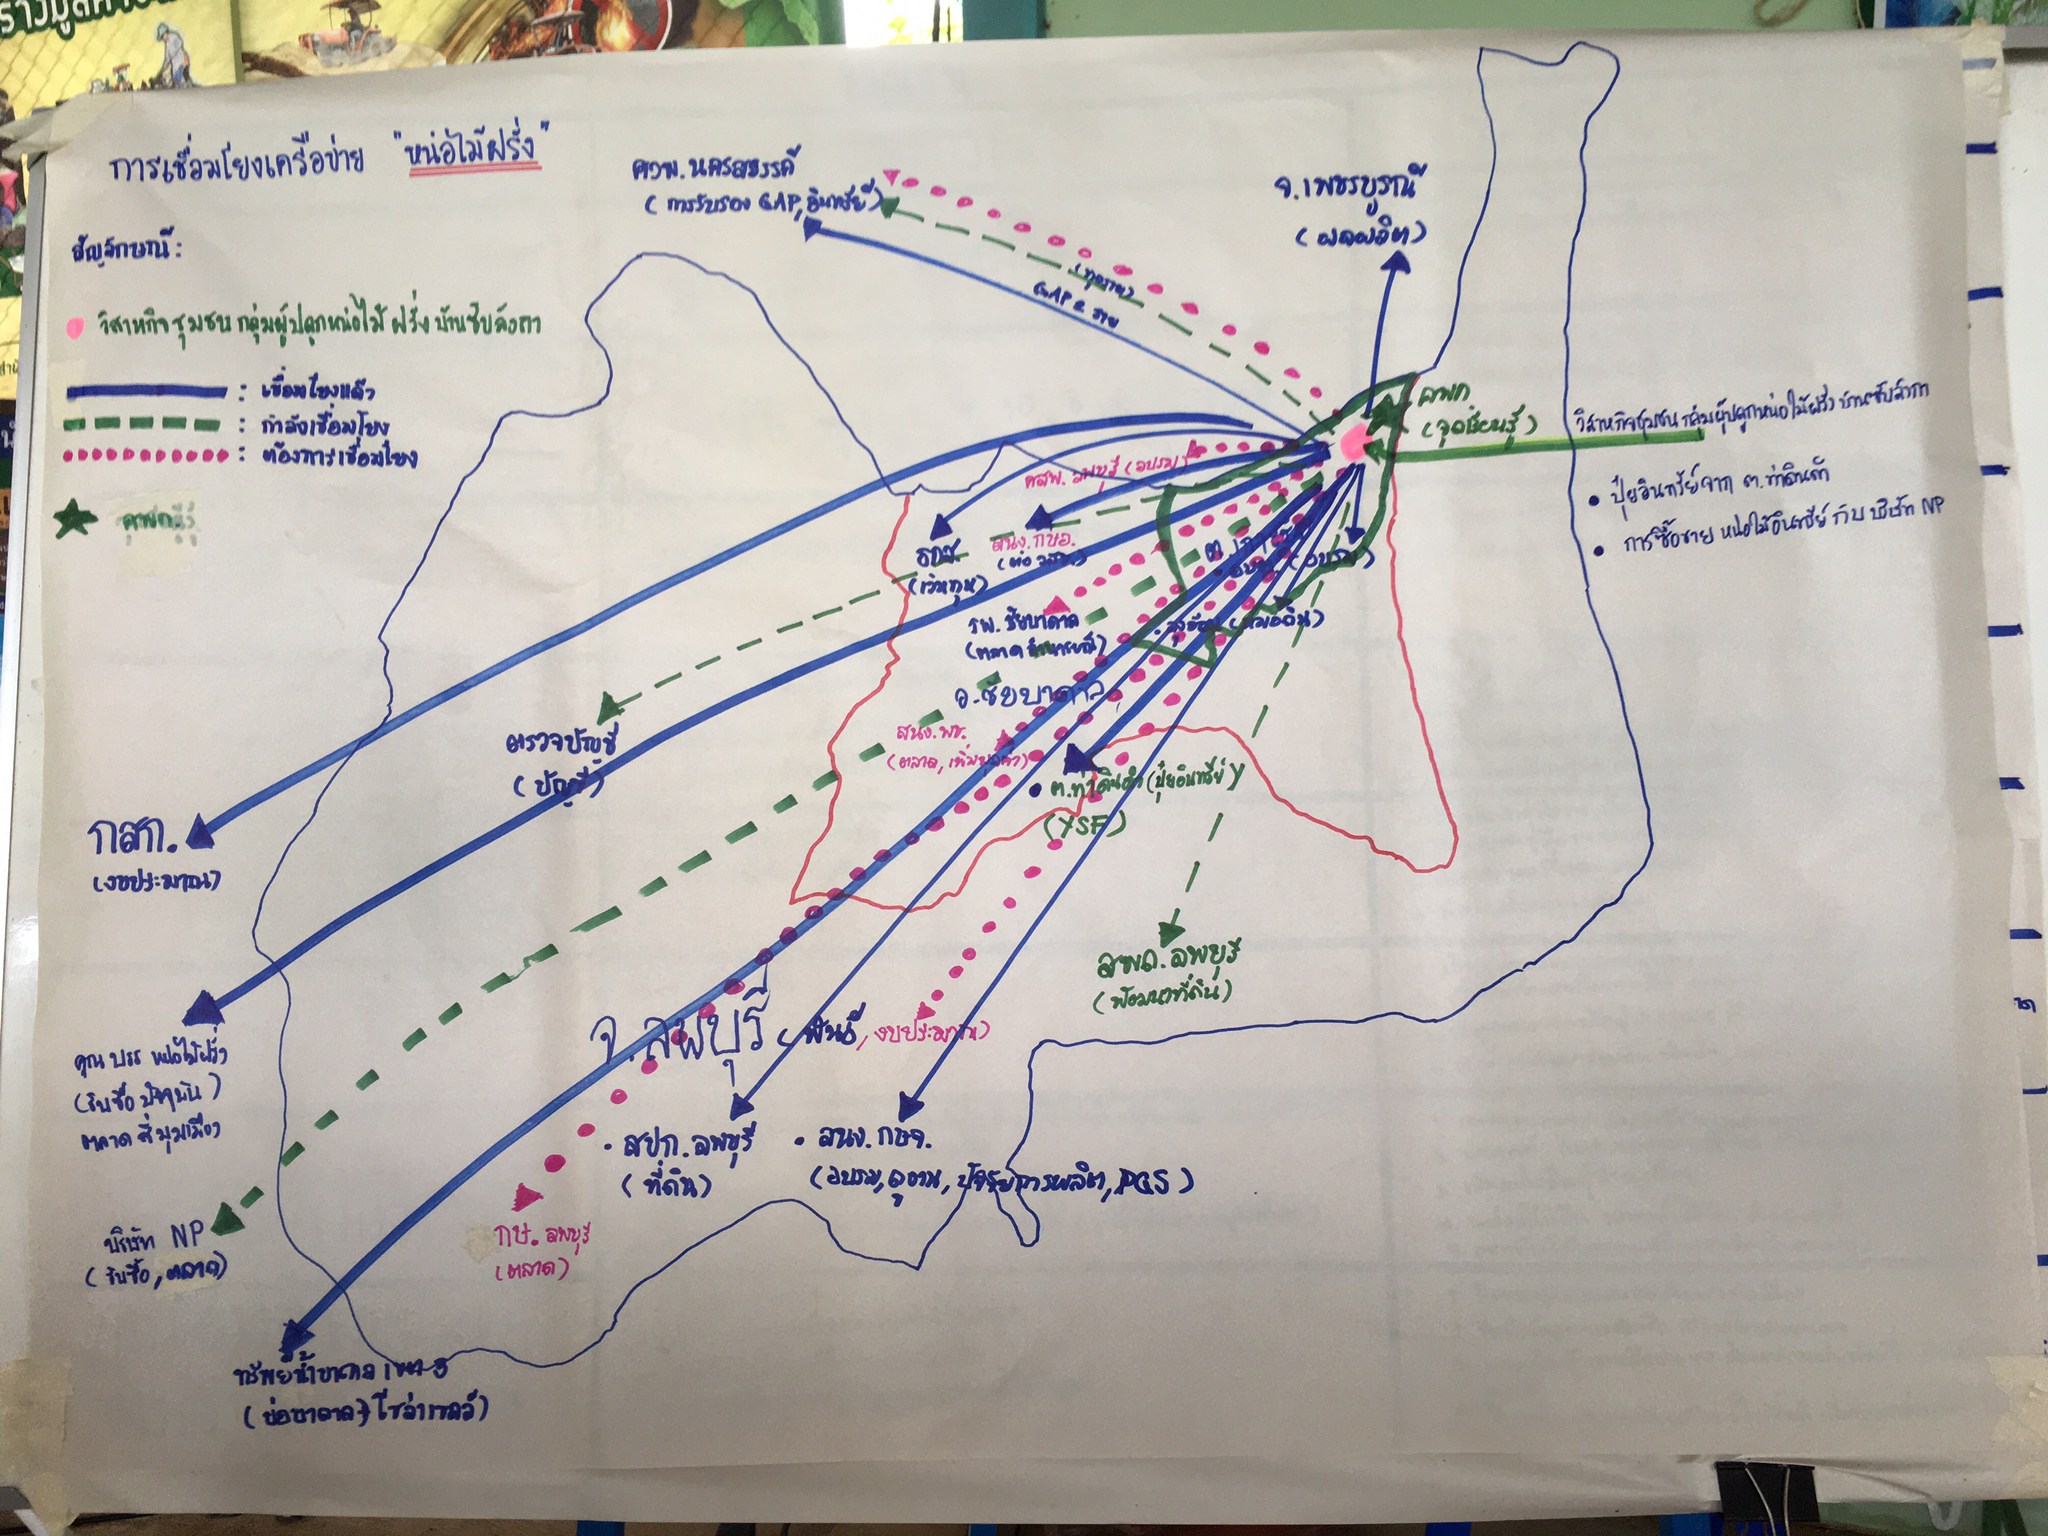 การเชื่อมโยงเครือข่าย "หน่อไม้ฝรั่ง"
สัญลักษณ์ :
วิสาหกิจชุมชน กลุ่มผู้ปลูกหน่อไม้ฝรั่ง บ้านซับลังกา
: เชื่อมโยงแล้ว
: กำลังเชื่อมโยง
: ต้องการเชื่อมโยง
ศพก
ศวพ.นครสวรรค์
(การรับรอง GAP, อินทรีย์)
GAP 2 ราย
จ.เพชรบูรณ์
(ผลผลิต)
ศพก
(จุดเรียนรู้)
วิสาหกิจชุมชน กลุ่มผู้ปลูกหน่อไม้ฝรั่ง บ้านซับลังกา
• ปุ๋ยอินทรีย์จาก ต.ท่าดินดำ
• การซื้อขาย หน่อไม้อินทรีย์ กับ บริษัท NP
ลพบุรี (อบรม)
ธกส
(เงินทุน)
สนง.กษอ.
รพ.ชัยบาดาล
(ตลาด
อ.ชัยบาดาล
สนง.พช.
(ตลาด, เพิ่มมูลค่า)
• ต.ท่าดินดำ (ปุ๋ยอินทรีย์)
(YSF)
ตรวจบัญชี
(บัญชี)
กสก.
(งบประมาณ)
สพด.ลพบุรี
(พัฒนาที่ดิน)
จ.ลพบุรี
(พันธุ์, งบประมาณ)
คุณ บรร หน่อไม้ฝรั่ง
(รับซื้อ ปัจจุบัน)
ตลาด สี่มุมเมือง
• สปก.ลพบุรี
(ที่ดิน)
• สนง.กษจ.
(อบรม, ดูงาน, ปัจจัยการผลิต, PGS)
บริษัท NP
(รับซื้อ, ตลาด)
กษ.ลพบุรี
(ตลาด)
ทรัพย์น้ำบาดาล เขต
(บ่อบาดาล+โซล่าเซลล์)